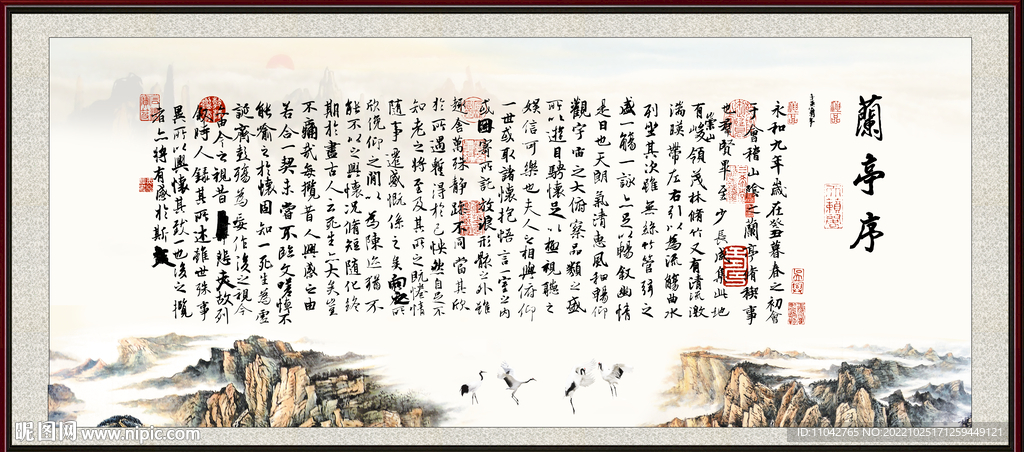 蘭亭序
永和九年歲在癸丑暮春之初會
于會稽山陰之蘭亭脩稧事
也羣賢畢至少長咸集此地
有崇山峻領茂林脩竹又有清流激
湍暎帶左右引以為流觴曲水
列坐其次雖無絲竹管弦之
盛一觴一詠亦足以暢叙幽情
是日也天朗氣清惠風和暢仰
觀宇宙之大俯察品類之盛
所以遊目騁懷足以極視聽之
娛信可樂也夫人之相與俯仰
一世或取諸懷抱悟言一室之內
或因寄所託放浪形骸之外雖
趣舍萬殊靜躁不同當其欣
於所遇暫得於己怏然自足不
知老之將至及其所之既惓情
隨事遷感慨係之矣向之所
欣俛仰之閒以為陳迹猶不
能不以之興懷況脩短隨化終
期於盡古人云死生亦大矣豈
不痛哉每攬昔人興感之由
若合一契未嘗不臨文嗟悼不
能喻之於懷固知一死生為虛
誕齊彭殤為妄作後之視今
亦由今之視昔悲夫故列
敘時人錄其所述雖世殊事
異所以興懷其致一也後之攬
者亦將有感於斯文
昵图网 www.nipic.com
ID:11042765 NO:20221025171259449121